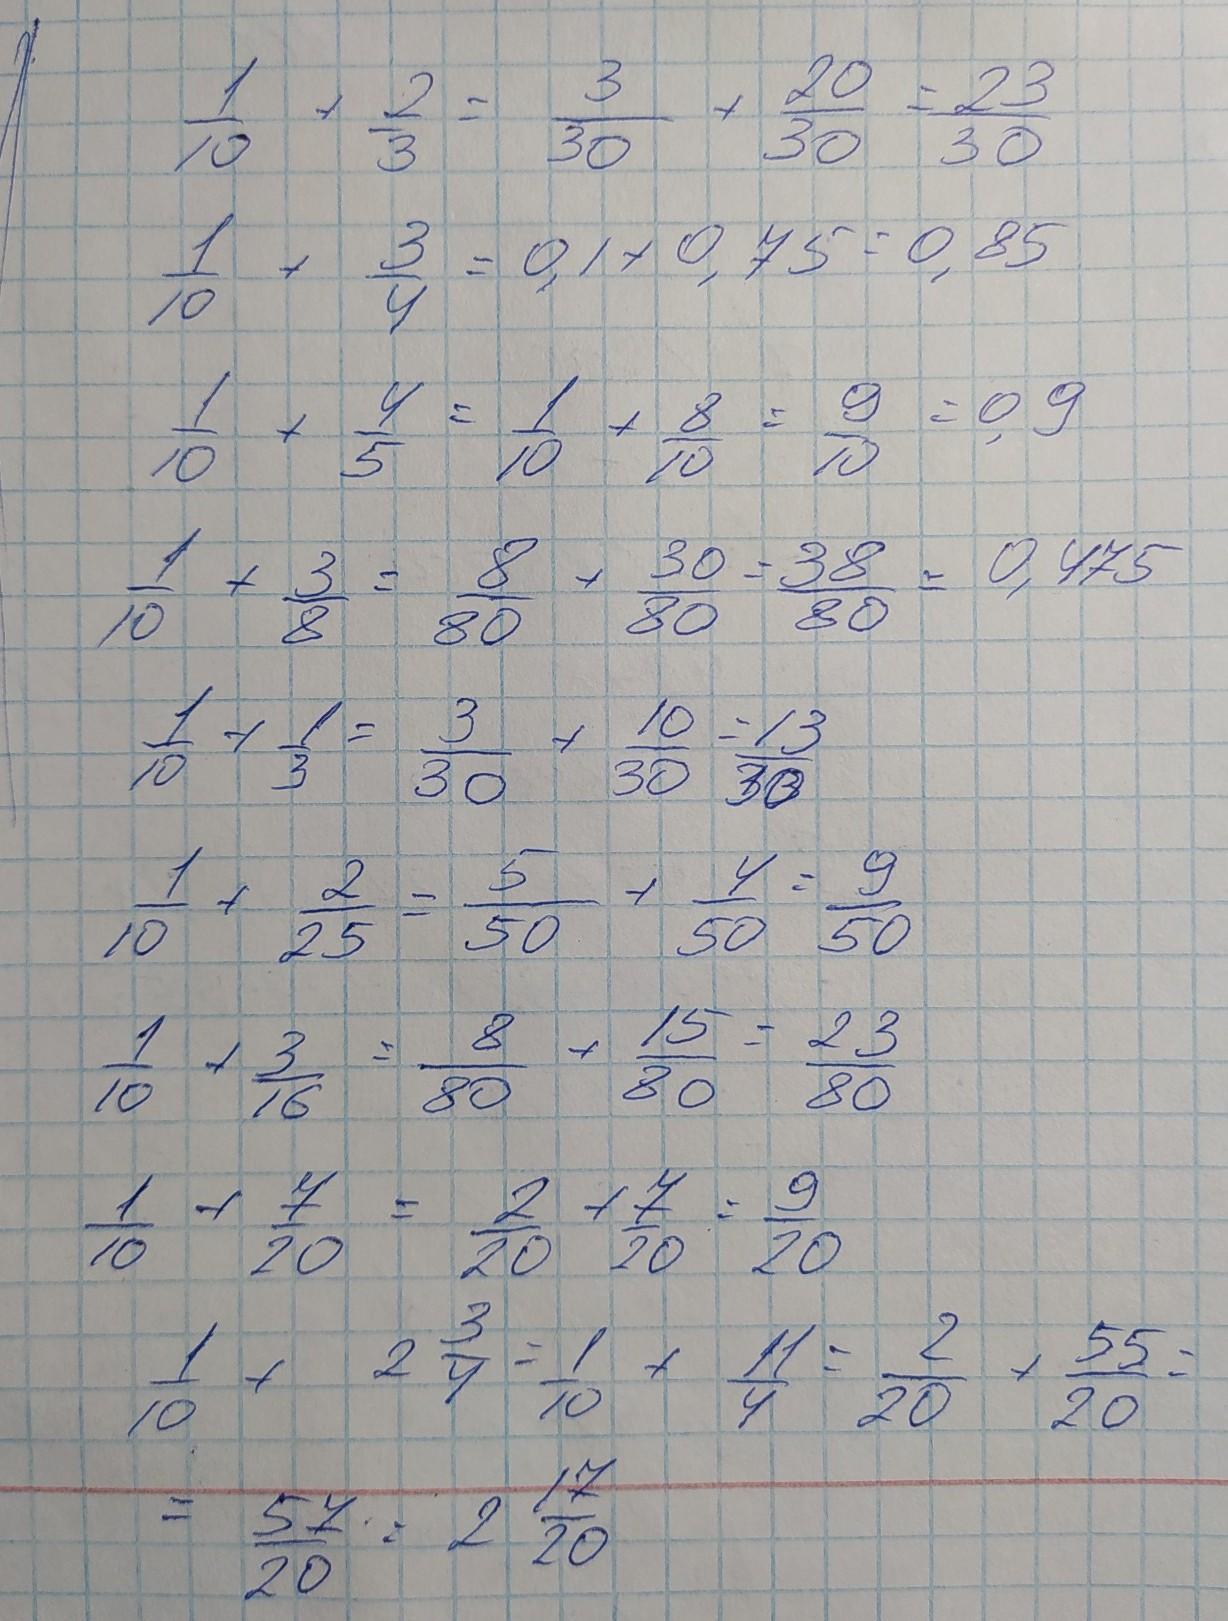 1/10 + 2/3 = 3/30 + 20/30 = 23/30
1/10 + 3/4 = 0,1 + 0,75 = 0,85
1/10 + 4/5 = 1/10 + 8/10 = 9/10 = 0,9
1/10 + 3/8 = 8/80 + 30/80 = 38/80 = 0,475
1/10 + 1/3 = 3/30 + 10/30 = 13/30
1/10 + 2/25 = 5/50 + 4/50 = 9/50
1/10 + 3/16 = 8/80 + 15/80 = 23/80
1/10 + 7/20 = 2/20 + 7/20 = 9/20
1/10 + 2 3/4 = 1/10 + 11/4 = 2/20 + 55/20 =
= 57/20 = 2 17/20